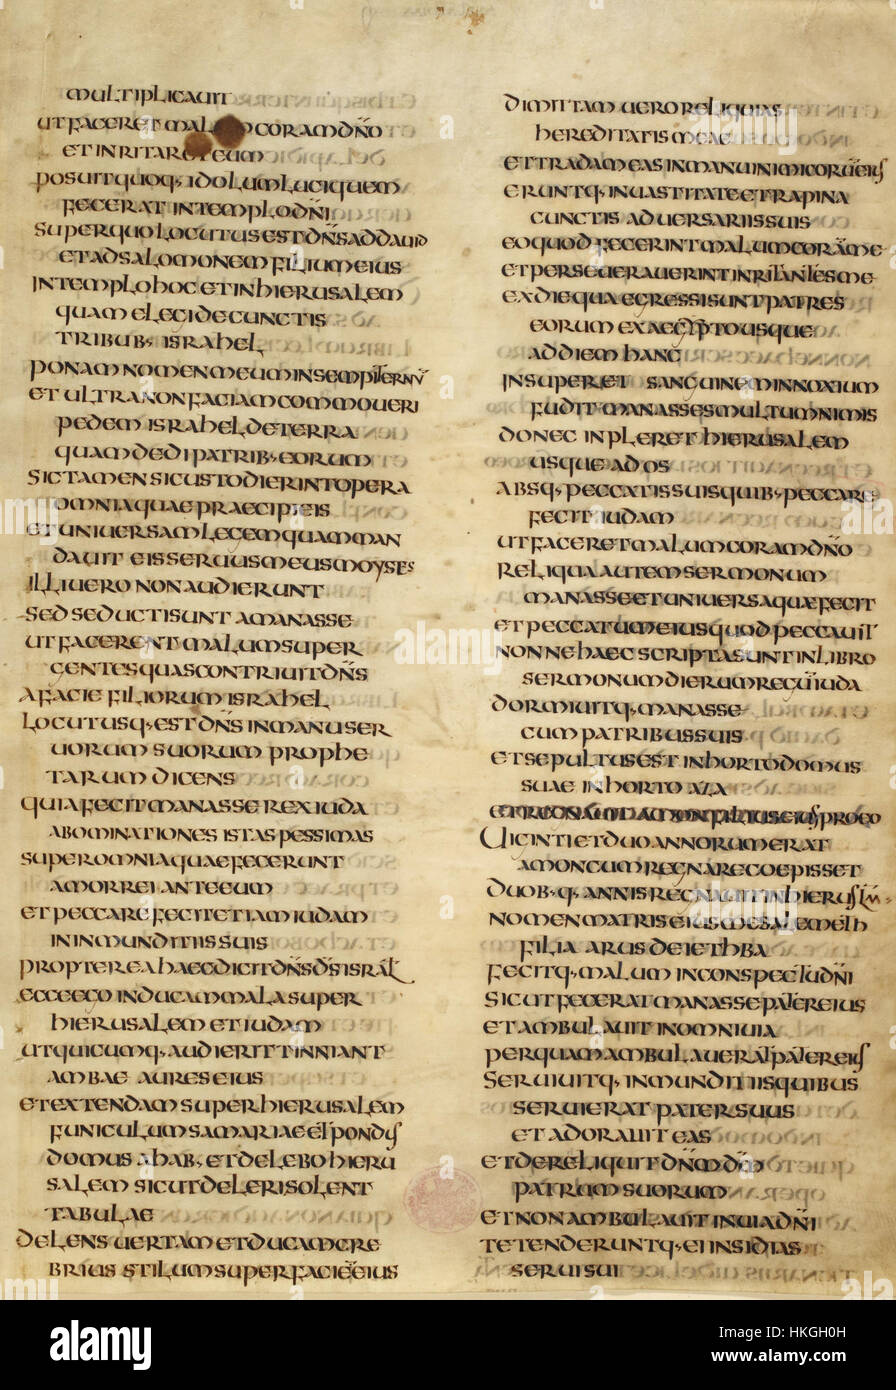 multiplicauit
utfaceretmalumcoramdno
etinritareteum
posuitquoq,idolumluciquem
feceratintemplodni
superquolocutusestdnsaddauid
etadsalomonemfiliumeius
intemplohocetinhierusalem
quamelegidecunctis
tribub,israhel
ponamnomenmeuminsempiternu
etultranonfaciamcommoueri
pedemisraheldeterra
quamdedipatrib,eorum
sictamensicustodierintopera
omniaquaepraecipieis
etuniuersamlegemquamman
dauiteisseruusmeusmoyses
illiueronnonaudierunt
sedseductisuntamanasse
utfacerentmalumsuper
gentesquascontriuitdns
afaciefiliorumisrahel
locutusq,estdnsinmanuser
uorumsuorumprophe
tarumdicens
quiafecitmanasserexiuda
abominationesistaspessimas
superomniaquaefecerunt
amorreianteeum
etpeccarefecitetiamiudam
ininmunditiissuis
proptereahaecdicitdnsdsisrahl
ecceegoinducammalasuper
hierusalemetiudam
utquicumq,audierittinniant
ambaeaureseius
etextendamsuperhierusalem
funiculumsamariaeetpondus
domusahab,etdelebohieru
salemsicutdelerisolent
tabulae
delensuertametducamcre
briusstilumsuperfacieeius
dimittamueroreliquias
hereditatismeae
ettradameasinmanuinimicorueius
eruntq,inuastitateetrapina
cunctisaduersariissuis
eoquodfecerintmalumcorame
etperseuerauerintinritantesme
exdiequaegressisuntpatres
eorumexaegyptousque
addiemhanc
insuperet sanguineminnoxium
fuditmanassesmultumnimis
donecinpleret hierusalem
usqueados
absq,peccatissuisquib,peccare
fecitiudam
utfaceretmalumcoramdno
reliquaautemsermonum
manasseetuniuersaquaefecit
etpeccatumeiusquodpeccauit
nonnehaecscriptasuntinlibro
sermonumdierumregumiuda
dormiuitq,manasse
cumpatribussuis
etsepultusestinhortodomus
suaeinhortoaza
etregnauitamonfiliuseiusproeo
Uigintietduoannorumerat
amoncumregnarecoepisset
duob,q,annisregnauitinhieruslm
nomenmatriseiusmesalemeth
filiaarusdeiethba
fecitq,maluminconspectudni
sicutfeceratmanassepatereius
etambulauitinomniuia
perquamambulaueratpatereius
seruiuitq,inmunditiisquibus
seruieratpatersuus
etadorauiteas
etdereliquitdnmdm
patrumsuorum
etnonambulauitinuiadni
tetenderuntq,eiinsidias
seruisui
alamy
Image ID: HKGH0H
www.alamy.com